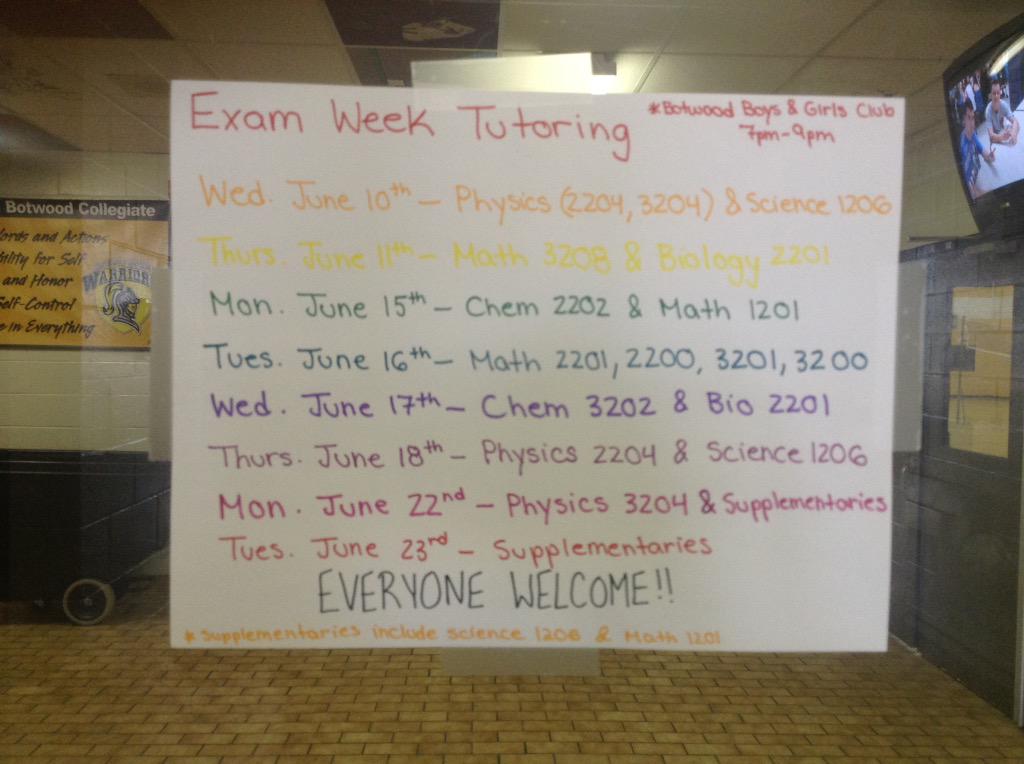 Exam Week Tutoring
*Botwood Boys & Girls Club
7pm-9pm
Wed. June 10th - Physics (2204, 3204) & Science 1206
Thurs. June 11th - Math 3208 & Biology 2201
Mon. June 15th - Chem 2202 & Math 1201
Tues. June 16th - Math 2201, 2200, 3201, 3200
Wed. June 17th - Chem 3202 & Bio 2201
Thurs. June 18th - Physics 2204 & Science 1206
Mon. June 22nd - Physics 3204 & Supplementaries
Tues. June 23rd - Supplementaries
EVERYONE WELCOME!!
* Supplementaries include science 1206 & Math 1201
Botwood Collegiate
and Actions
for Self
and Honor
Self-Control
in Everything
WARRIORS